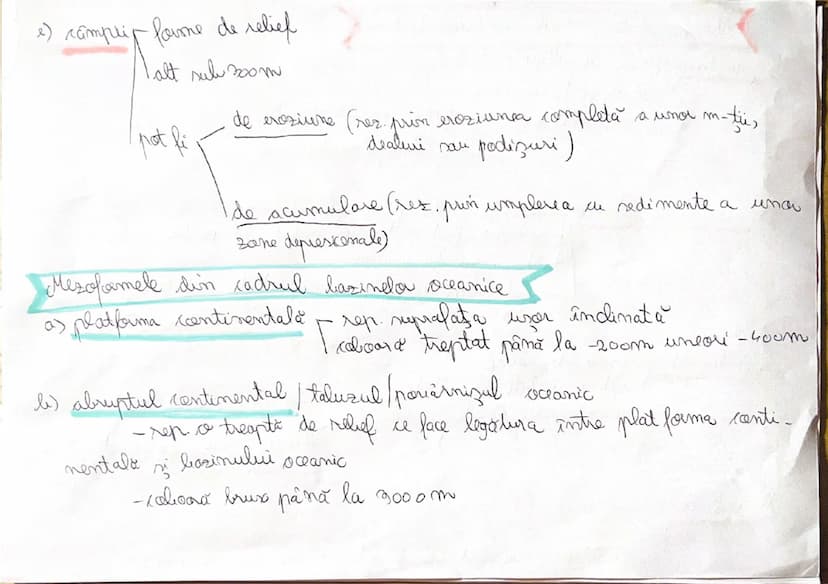 e) câmpii forme de relief
alt sub 300m
pot fi
de eroziune (rez. prin eroziunea completă a unor m-ții,
dealuri sau podișuri)
de acumulare (rez. prin umplerea cu sedimente a unor
zone depresionale)
Mezoformele din cadrul bazinelor oceanice
a) platforma continentală rep. suprafața ușor înclinată
coboară treptat până la -200m uneori -400m
b) abruptul continental / taluzul / povârnișul oceanic
- rep. o treaptă de relief ce face legătura între platforma conti-
nentală și bazinului oceanic
- coboară brusc până la 3000m